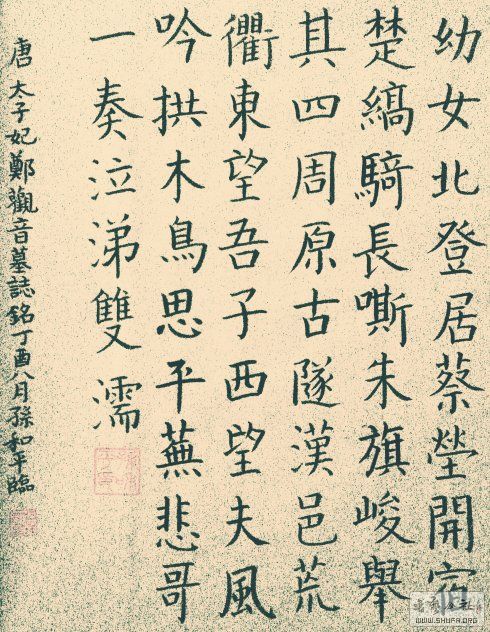 幼女北登居蔡塋開
楚縞騎長嘶朱旗峻舉
其四周原古隧漢邑荒
衢東望吾子西望夫風
吟拱木鳥思平蕪悲哥
一奏泣涕雙濡
唐太子妃鄭觀音墓誌銘丁酉八月孫和平臨
WWW.SHUFA.ORG